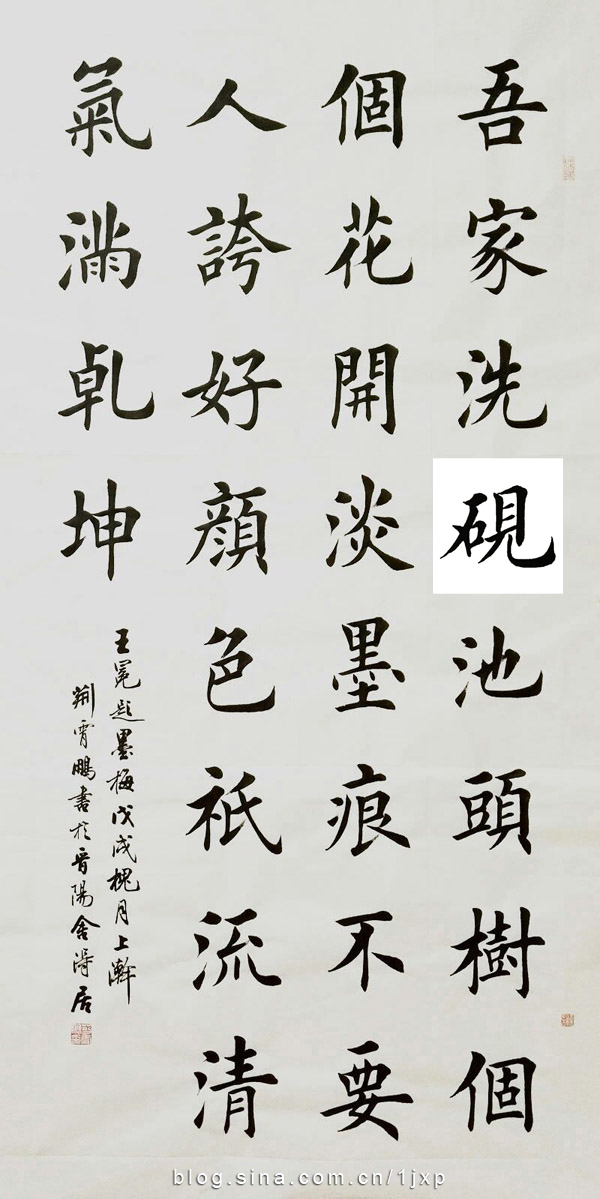 吾家洗硯池頭樹個
個花開淡墨痕不要
人誇好顏色祇流清
氣滿乹坤
王冕題墨梅戊戌槐月上澣
荊霄鵬書於晉陽舍得居
blog.sina.com.cn/1jxp